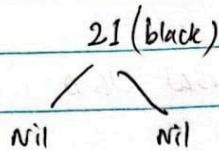 21 (black)
Nil Nil